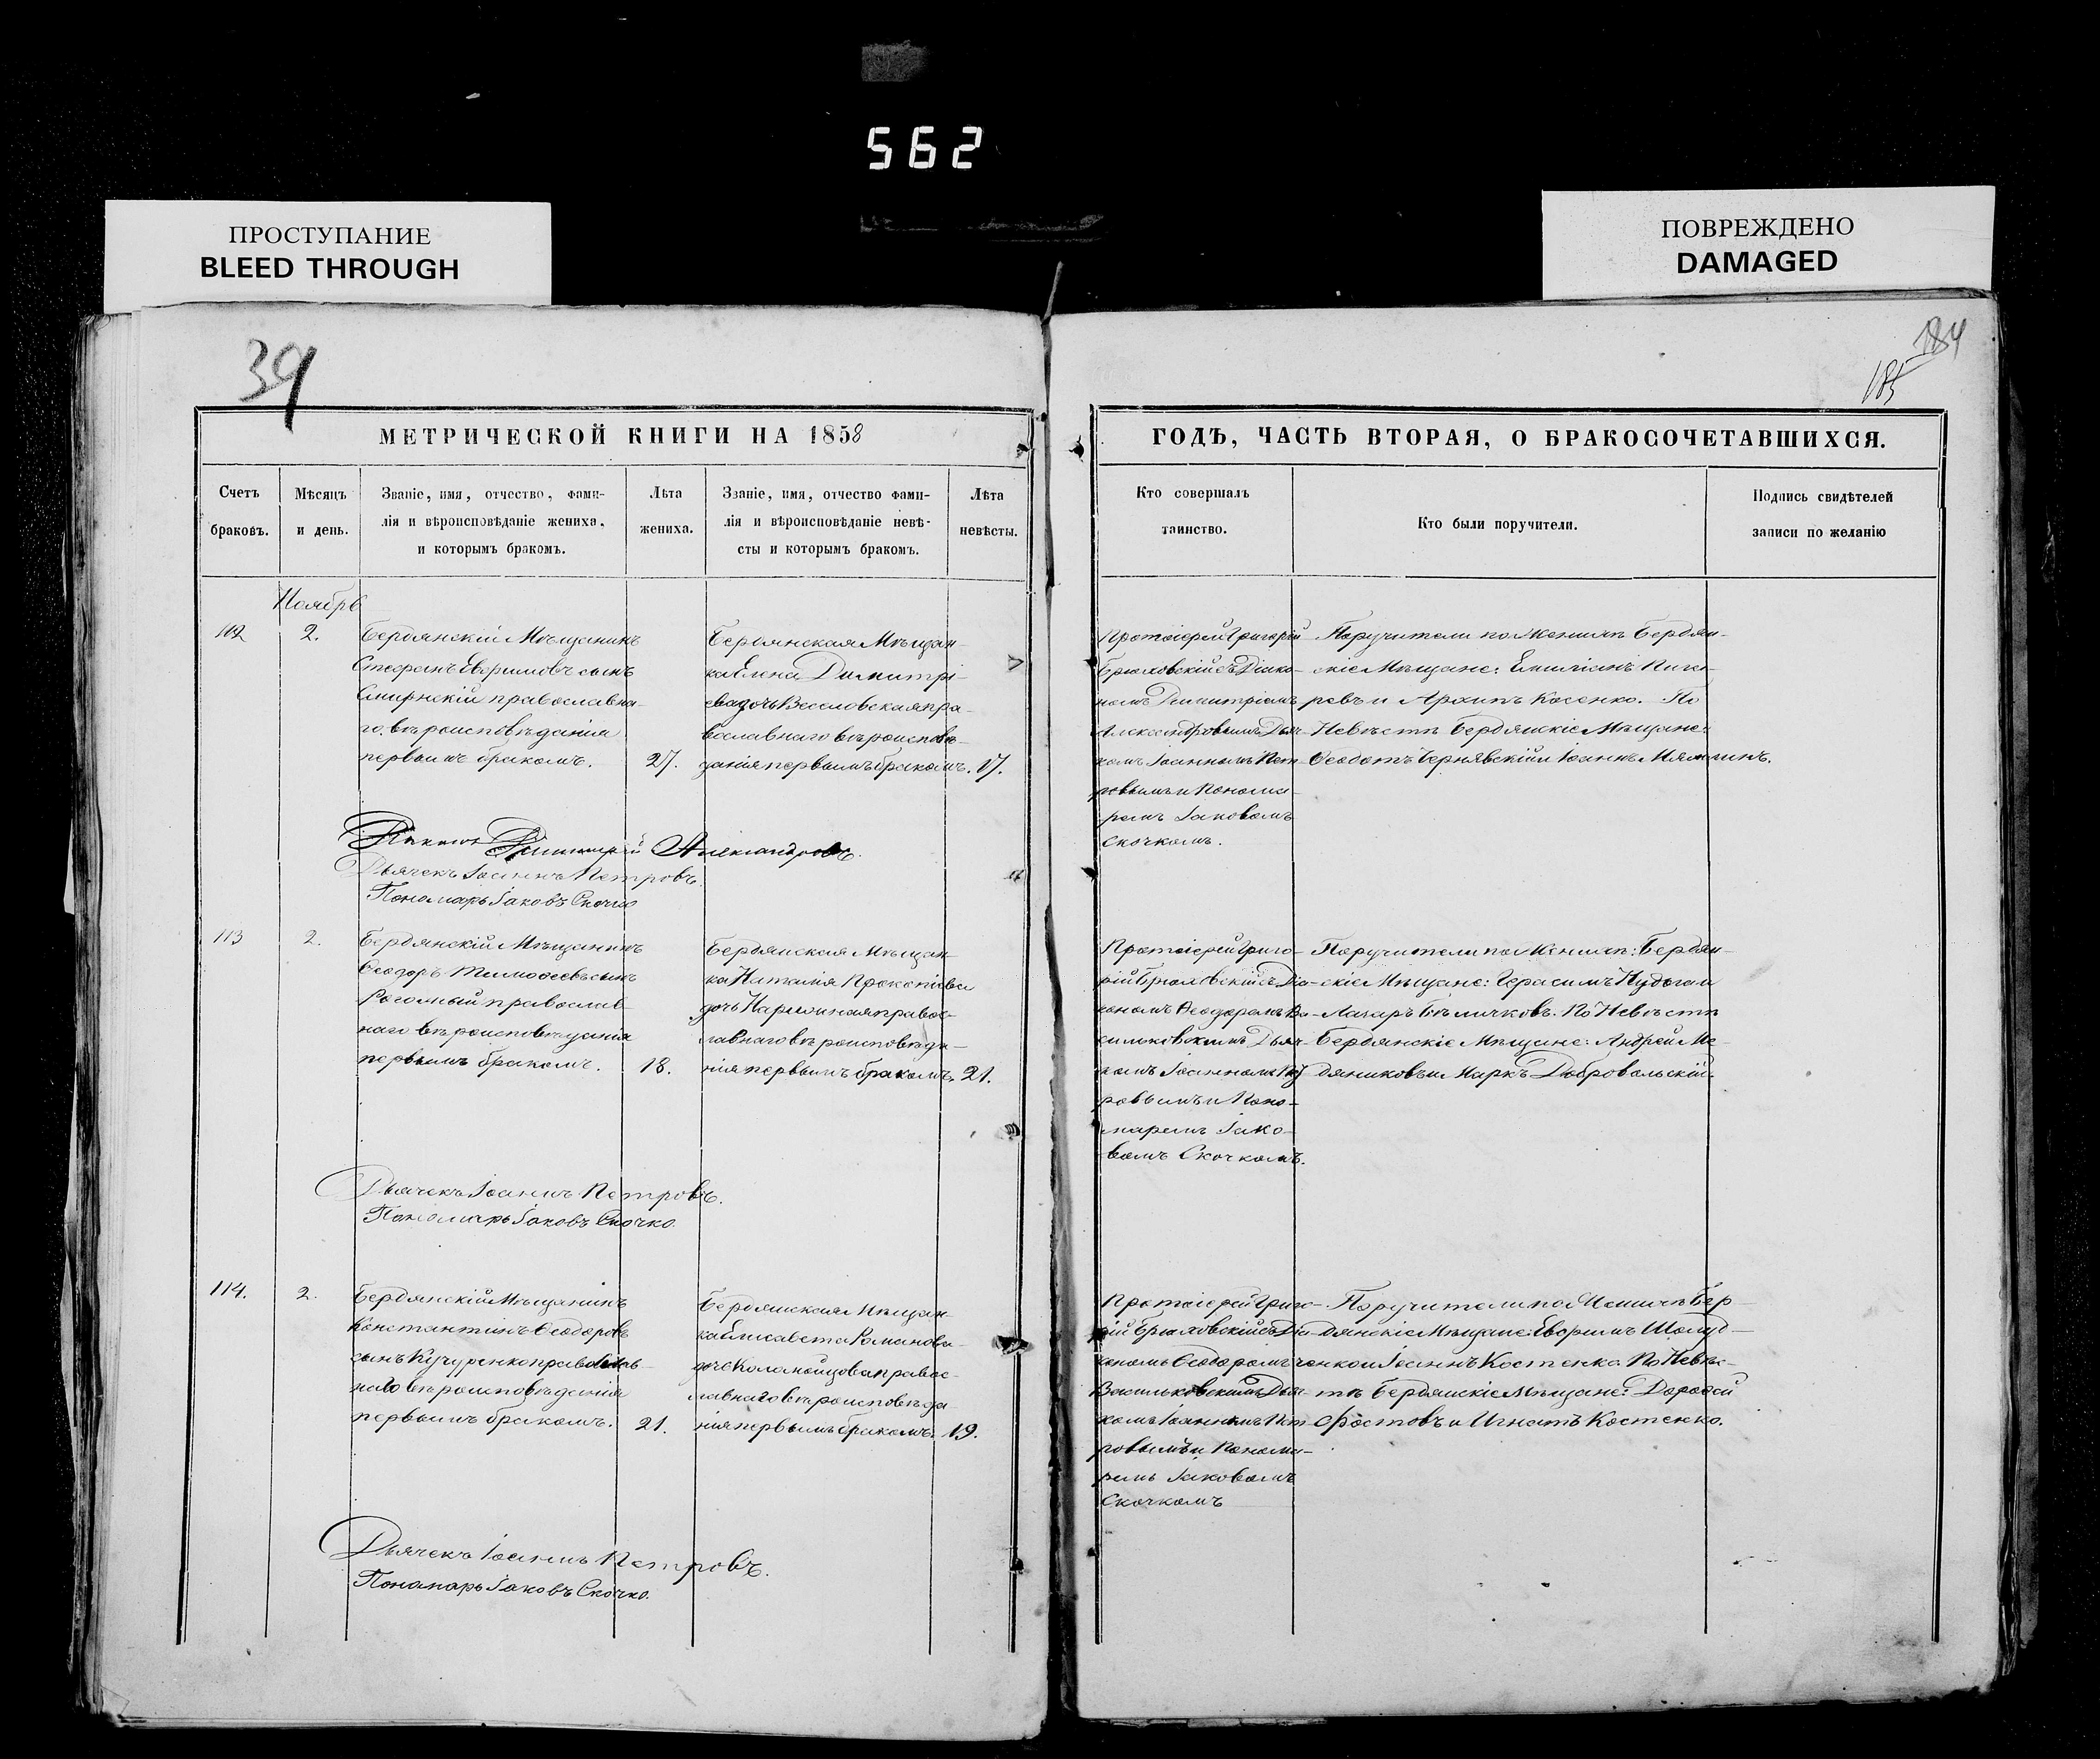 562
ПРОСТУПАНИЕ
BLEED THROUGH
ПОВРЕЖДЕНО
DAMAGED
39
184
185
МЕТРИЧЕСКОЙ КНИГИ НА 1858
Счетъ
браковъ.
Мѣсяцъ
и день.
Званіе, имя, отчество, фами-
лія и вѣроисповѣданіе жениха,
и которымъ бракомъ.
Лѣта
жениха.
Званіе, имя, отчество фами-
лія и вѣроисповѣданіе невѣ-
сты и которымъ бракомъ.
Лѣта
невѣсты.
ГОДЪ, ЧАСТЬ ВТОРАЯ, О БРАКОСОЧЕТАВШИХСЯ.
Кто совершалъ
таинство.
Кто были поручители.
Подпись свидѣтелей
записи по желанію
Ноябрь
112
2.
Бердянскій Мѣщанинъ
Стефанъ Евфимовъ сынъ
Смирнскій православна-
го вѣроисповѣданія
первымъ бракомъ.
27.
Бердянская Мѣщан-
ка Елена Димитрі-
ева дочь Веселовская пра-
вославнаго вѣроисповѣ-
данія первымъ бракомъ.
17.
Протоіерей Григорій
Брюховскій съ Діако-
номъ Димитріемъ
Александровымъ Дьяч-
комъ Іоанномъ Пет-
ровымъ и Понома-
ремъ Іаковомъ
Скочкомъ.
Поручители по Женихѣ Бердян-
скіе Мѣщане: Емиліанъ
и Архипъ Косенко. По
Невѣстѣ Бердянскіе Мѣщане:
Ѳеодотъ Чернявскій и Іоаннъ
Діаконъ Димитрій Александровъ.
Дьячекъ Іоаннъ Петровъ.
Пономарь Іаковъ Скочко
113
2.
Бердянскій Мѣщанинъ
Ѳеодоръ Тимоѳеевъ сынъ
православ-
наго вѣроисповѣданія
первымъ бракомъ.
18.
Бердянская Мѣщан-
ка Наталія Прокопіева
дочь правос-
лавнаго вѣроисповѣда-
нія первымъ бракомъ.
21.
Протоіерей Григо-
рій Брюховскій съ Діа-
кономъ Ѳеодоромъ Ва-
сильковскимъ Дьяч-
комъ Іоанномъ Пет-
ровымъ и Поно-
маремъ Іако-
вомъ Скочкомъ.
Поручители по Женихѣ: Бердян-
скіе Мѣщане: Герасимъ и
Лазарь Бѣличковъ. По Невѣстѣ
Бердянскіе Мѣщане: Андрей Ме-
дяниковъ и Маркъ Добровольскій.
Дьячекъ Іоаннъ Петровъ.
Пономарь Іаковъ Скочко.
114.
2.
Бердянскій Мѣщанинъ
Константинъ Ѳеодоровъ
сынъ Кучуренко православ-
наго вѣроисповѣданія
первымъ бракомъ.
21.
Бердянская Мѣщан-
ка Елисавета Романова
дочь Коломойцова правос-
лавнаго вѣроисповѣда-
нія первымъ бракомъ.
19.
Протоіерей Григо-
рій Брюховскій съ Діа-
кономъ Ѳеодоромъ
Васильковскимъ Дьяч-
комъ Іоанномъ Пет-
ровымъ и Понома-
ремъ Іаковомъ
Скочкомъ
Поручители по Женихѣ Бер-
дянскіе Мѣщане: Евфимъ Шолуд-
ченко и Іоаннъ Костенко. По Невѣс-
тѣ Бердянскіе Мѣщане: Дороѳей
Фостовъ и Игнатъ Костенко.
Дьячекъ Іоаннъ Петровъ.
Пономарь Іаковъ Скочко.